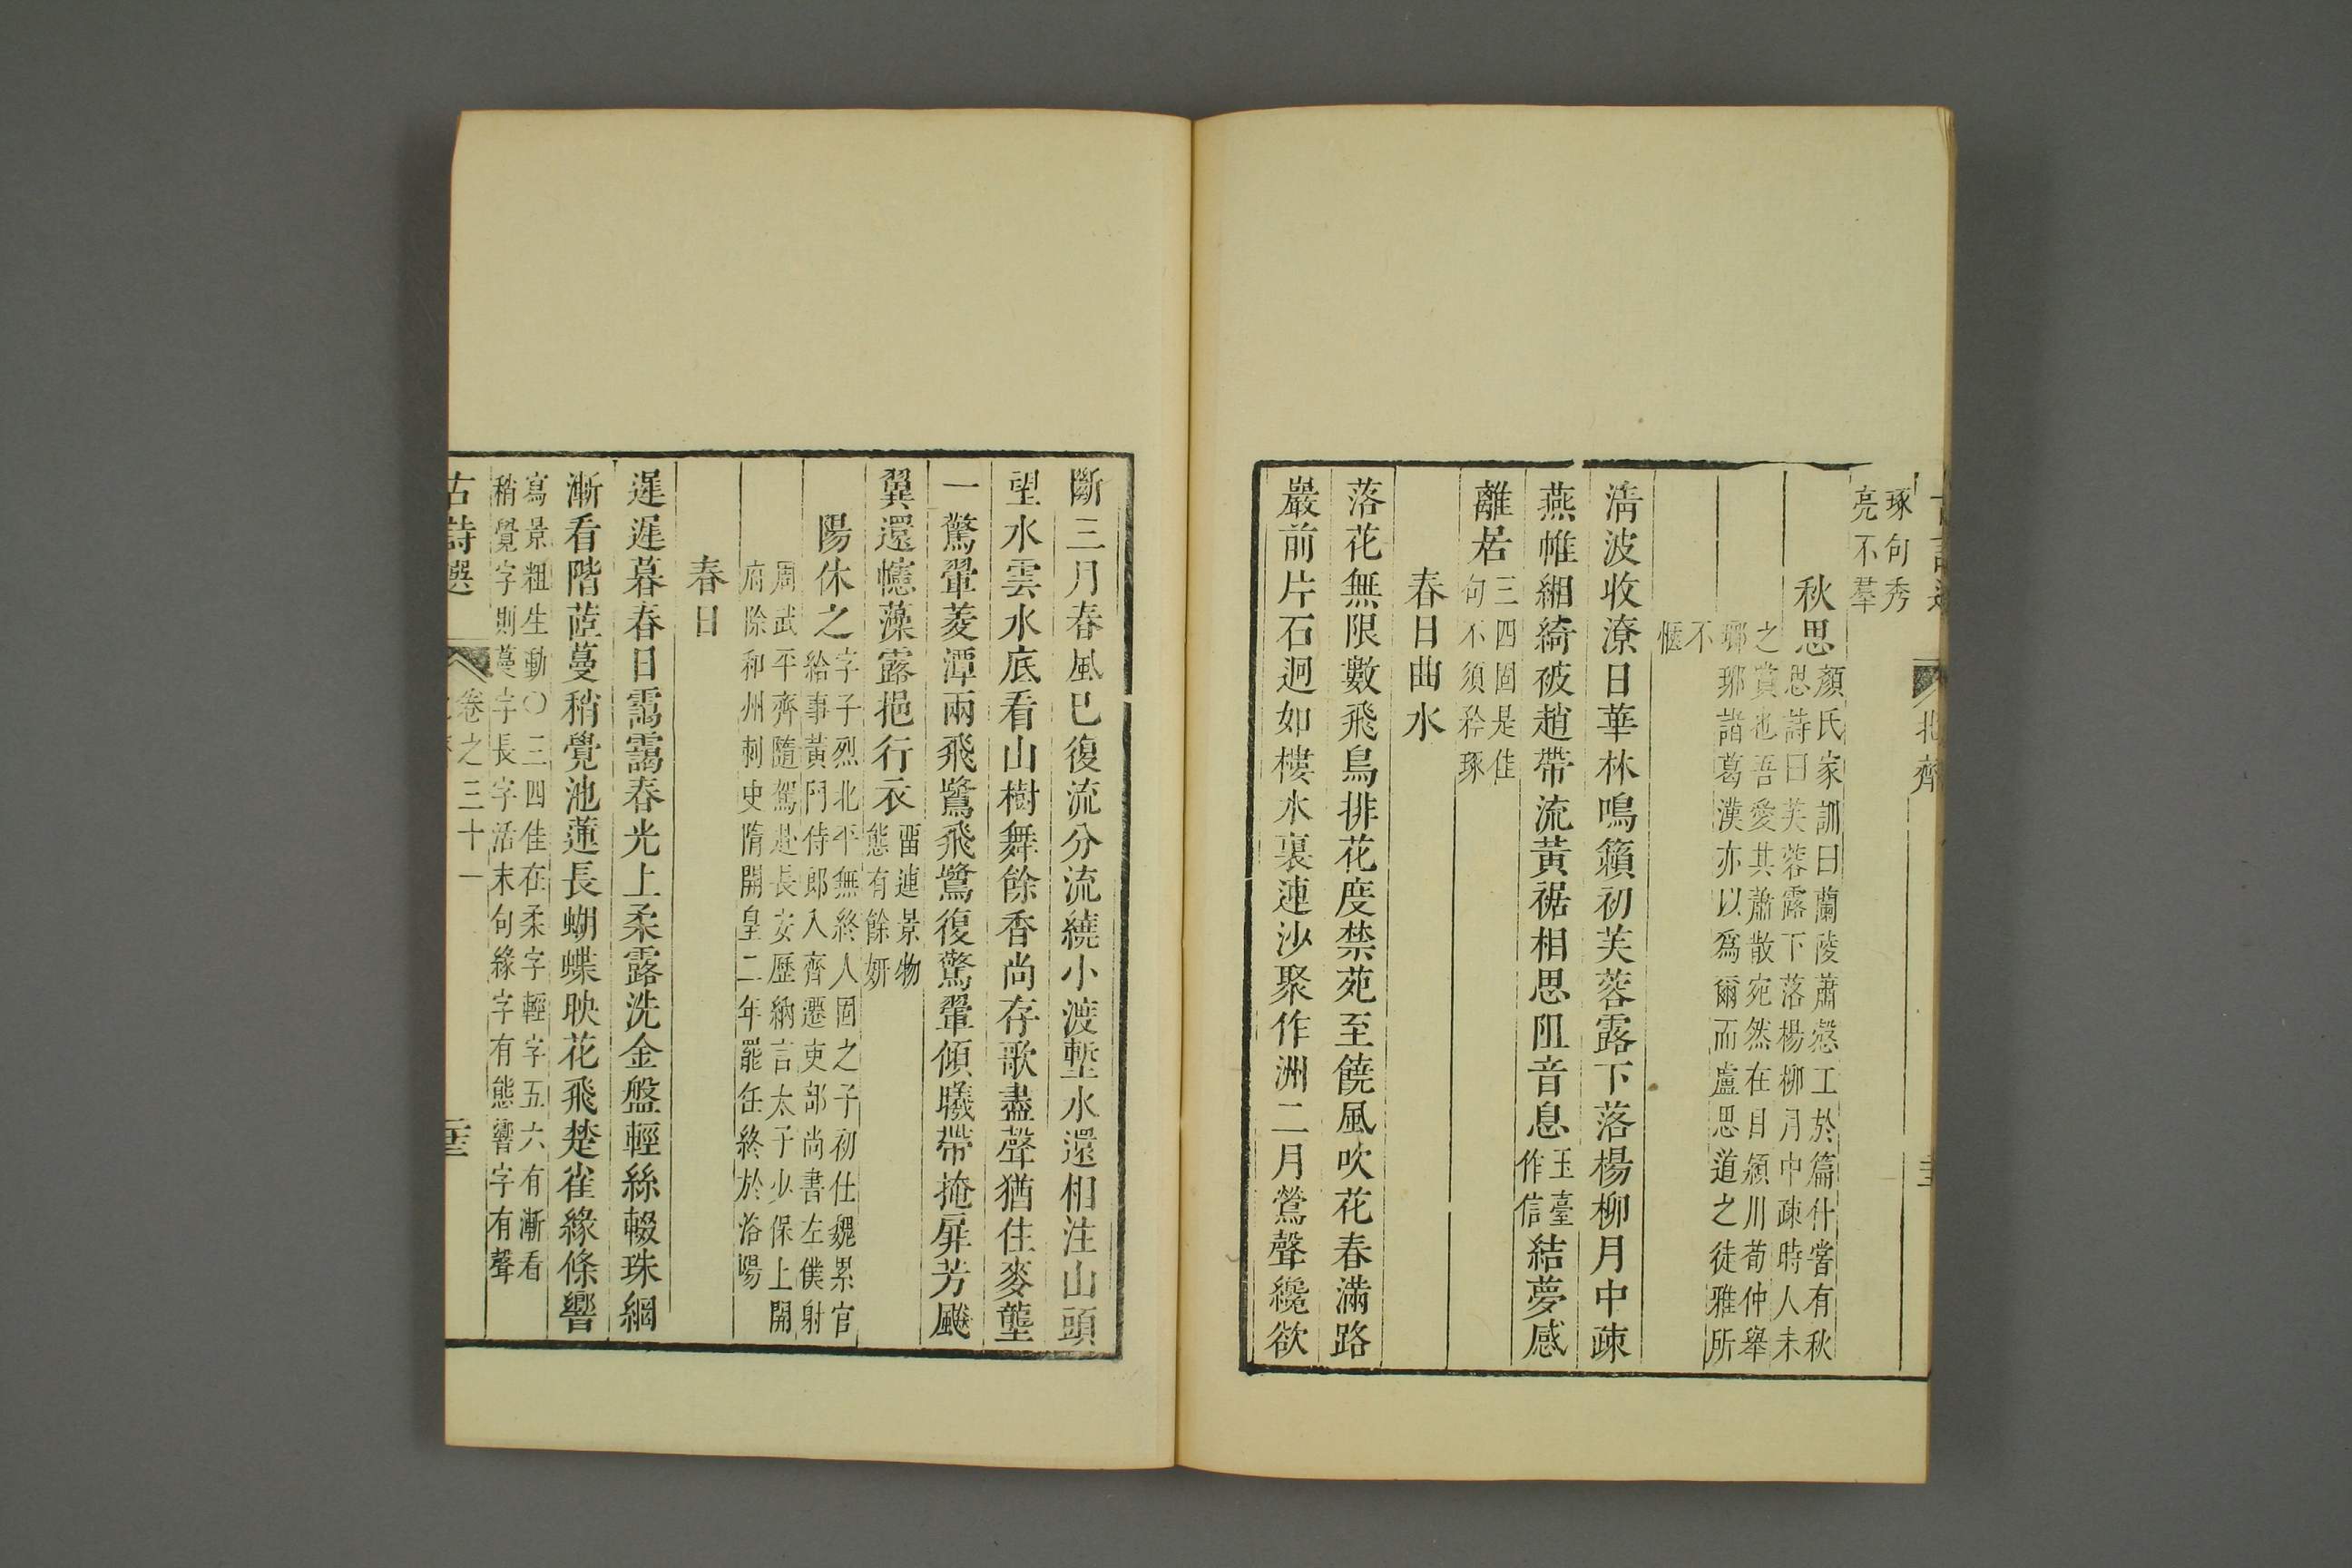 北齊
琢句秀
亮不羣
秋思
顏氏家訓曰蘭陵蕭慤工於篇什嘗有秋
思詩曰芙蓉露下落楊柳月中疎時人未
之賞也吾愛其蕭散宛然在目潁川荀仲舉
瑯琊諸葛漢亦以爲爾而盧思道之徒雅所
不
愜
淸波收潦日華林鳴籟初芙蓉露下落楊柳月中疎
燕幃緗綺被趙帶流黃裾相思阻音息
玉臺
作信
結夢感
離居
三四固是佳
句不須矜琢
春日曲水
落花無限數飛鳥排花度禁苑至饒風吹花春滿路
巖前片石迥如樓水裏連沙聚作洲二月鶯聲纔欲
斷三月春風已復流分流繞小渡塹水還相注山頭
望水雲水底看山樹舞餘香尚存歌盡聲猶住麥壟
一驚翬菱潭兩飛鷺飛鷺復驚翬傾曦帶掩扉芳飈
翼還幰藻露挹行衣
畱連景物
態有餘妍
陽休之
字子烈北平無終人固之子初仕魏累官
給事黃門侍郎入齊遷吏部尚書左僕射
周武平齊隨駕赴長安歷納言太子少保上開
府除和州刺史隋開皇二年罷任終於洛陽
春日
遲遲暮春日靄靄春光上柔露洗金盤輕絲輟珠網
漸看階蓙蔓稍覺池蓮長蝴蝶映花飛楚雀緣條響
寫景粗生動〇三四佳在柔字輕字五六有漸看
稍覺字則蔓字長字活末句緣字有態響字有聲
古詩選
卷之三十一